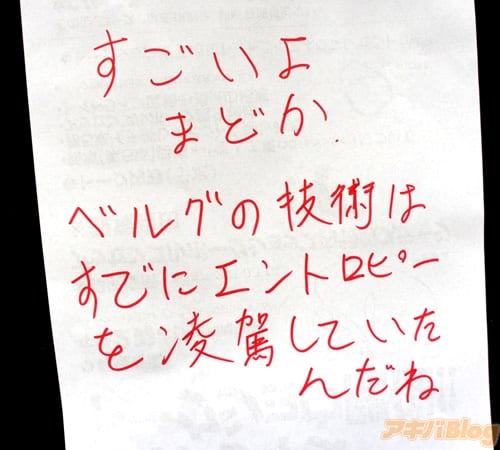 すごいよ
まどか
ベルグの技術は
すでにエントロピー
を凌駕していた
んだね
アキバBlog